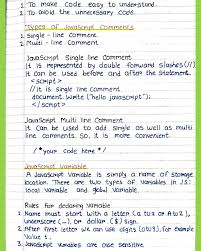 1. To make code easy to understand
2. To avoid the unnecessary code.
Types of JavaScript Comments
1. Single - line Comment
2. Multi - line Comment
JavaScript Single line Comment
It is represented by double forward slashes(//)
It can be used before and after the statement.
<script>
// it is single line comment
document.write ("hello javascript");
</script>
JavaScript Multi line Comment
It can be used to add single as well as multi
line comments. So, it is more convenient.
/* your code here */
JavaScript Variable
A JavaScript variable is simply a name of storage
location. There are two types of variables in JS:
local variable and global variable.
Rules for declaring variable
1. Name must start with a letter (a to z or A to Z),
underscore (-) or dollar ($) sign.
2. After first letter we can use digits (0 to 9), for example
value 1.
3. JavaScript variables are case sensitive